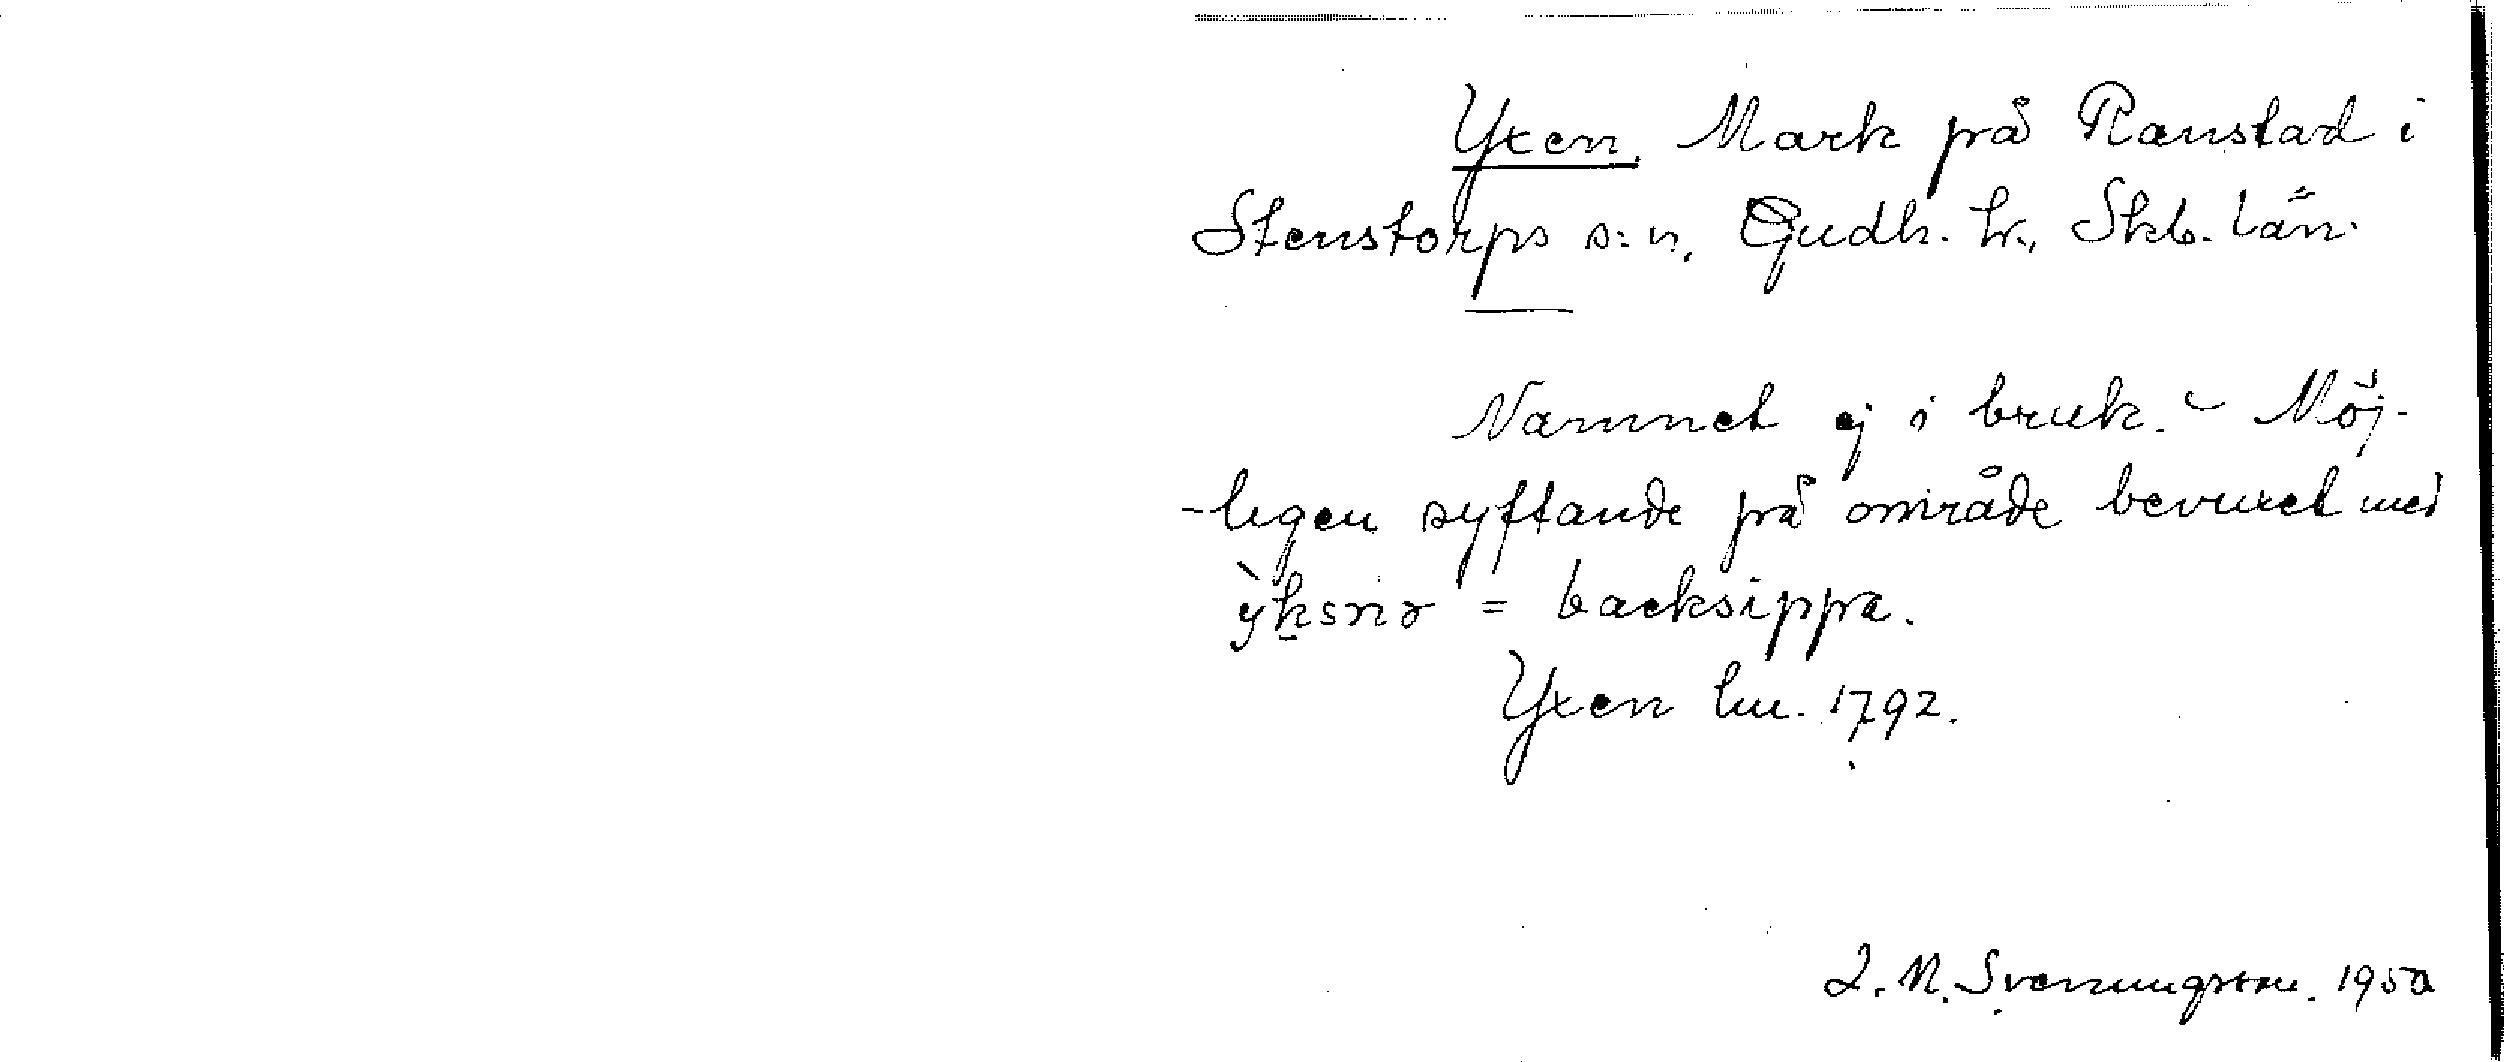 Yxen. Mark på Ranstad i
Stenstorps s:n, Gudh. hr., Skb. län.
Namnet ej i bruk. - Möj-
-ligen syftande på område bevuxet med
ỳksnɘ = backsippa.
Yxen lm. 1792.
S. Svenungsson. 1950